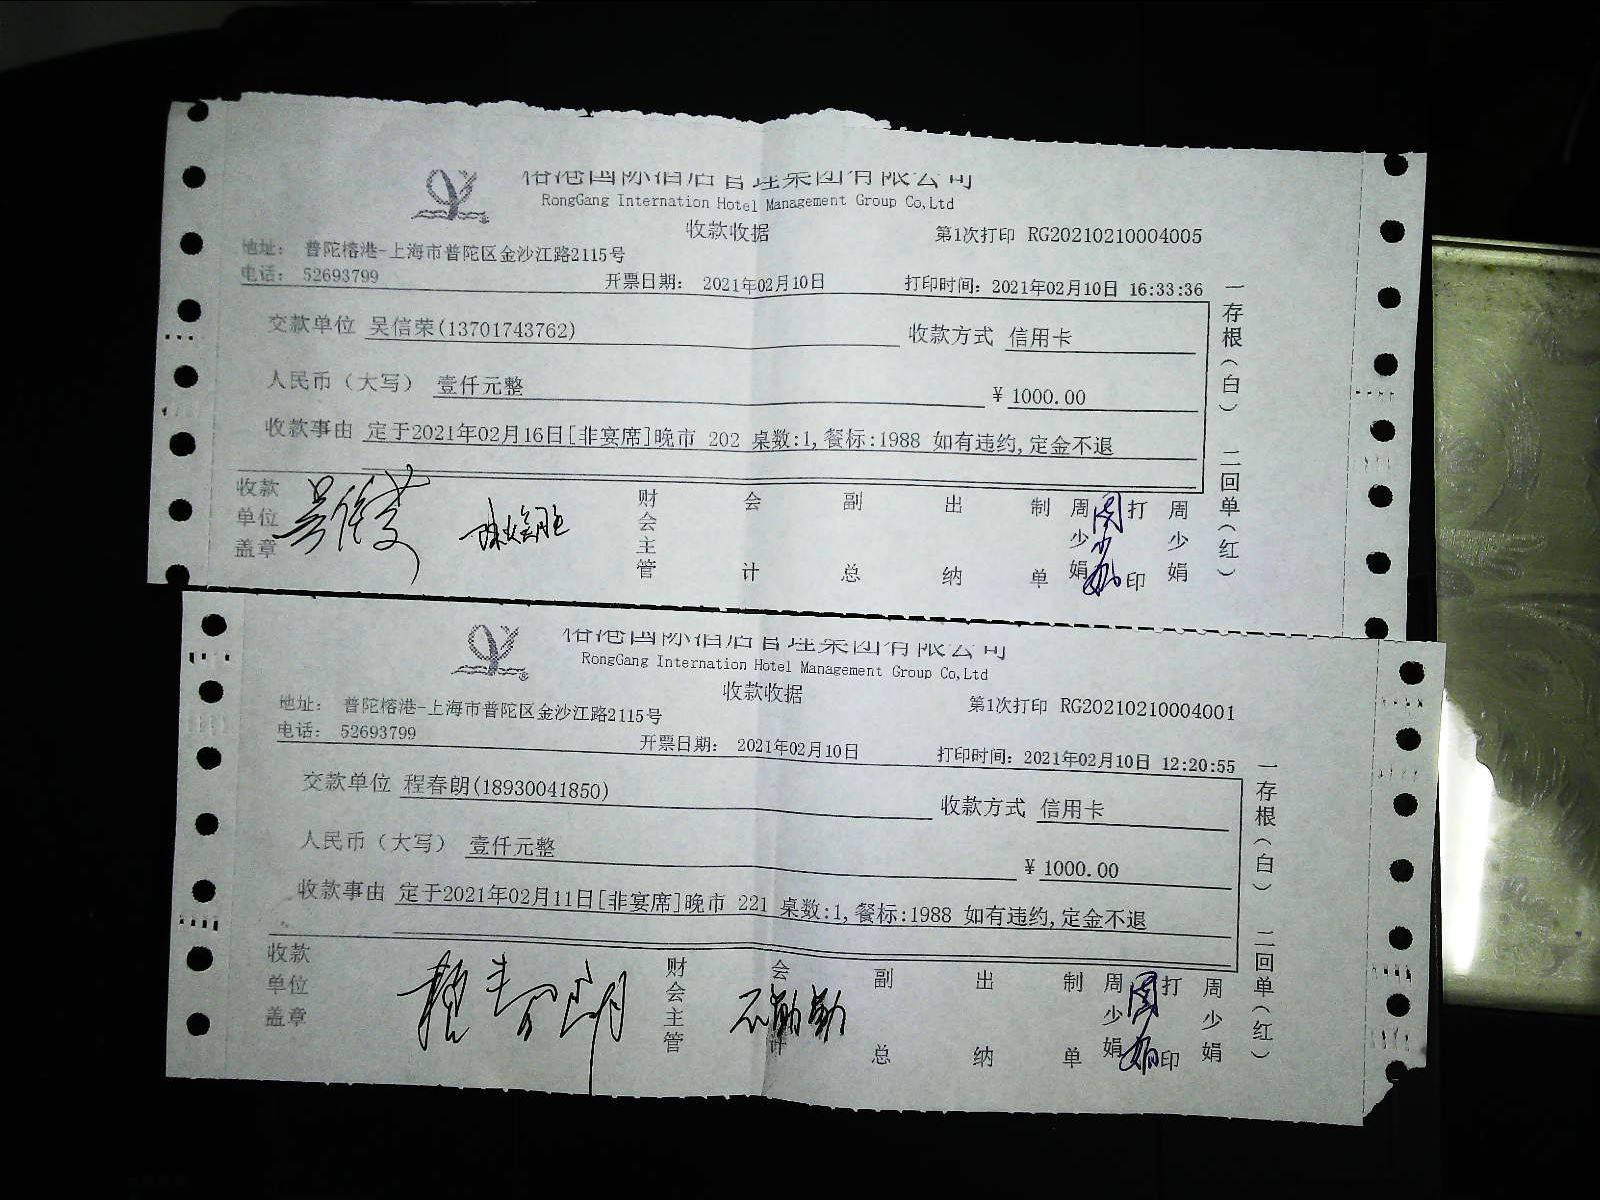 榕港国际酒店管理集团有限公司
RongGang Internation Hotel Management Group Co,Ltd
收款收据
第1次打印 RG20210210004005
地址： 普陀榕港-上海市普陀区金沙江路2115号
电话： 52693799
开票日期： 2021年02月10日
打印时间：2021年02月10日 16:33:36
交款单位 吴信荣(13701743762)
收款方式 信用卡
人民币（大写） 壹仟元整
¥ 1000.00
收款事由 定于2021年02月16日[非宴席]晚市 202 桌数:1,餐标:1988 如有违约,定金不退
一存根（白） 二回单（红）
收款单位盖章
财会主管
会计
副总
出纳
制单
周少娟
打印
周少娟
榕港国际酒店管理集团有限公司
RongGang Internation Hotel Management Group Co,Ltd
收款收据
第1次打印 RG20210210004001
地址： 普陀榕港-上海市普陀区金沙江路2115号
电话： 52693799
开票日期： 2021年02月10日
打印时间：2021年02月10日 12:20:55
交款单位 程春朗(18930041850)
收款方式 信用卡
人民币（大写） 壹仟元整
¥ 1000.00
收款事由 定于2021年02月11日[非宴席]晚市 221 桌数:1,餐标:1988 如有违约,定金不退
一存根（白） 二回单（红）
收款单位盖章
程春朗
财会主管
会计
副总
出纳
制单
周少娟
打印
周少娟